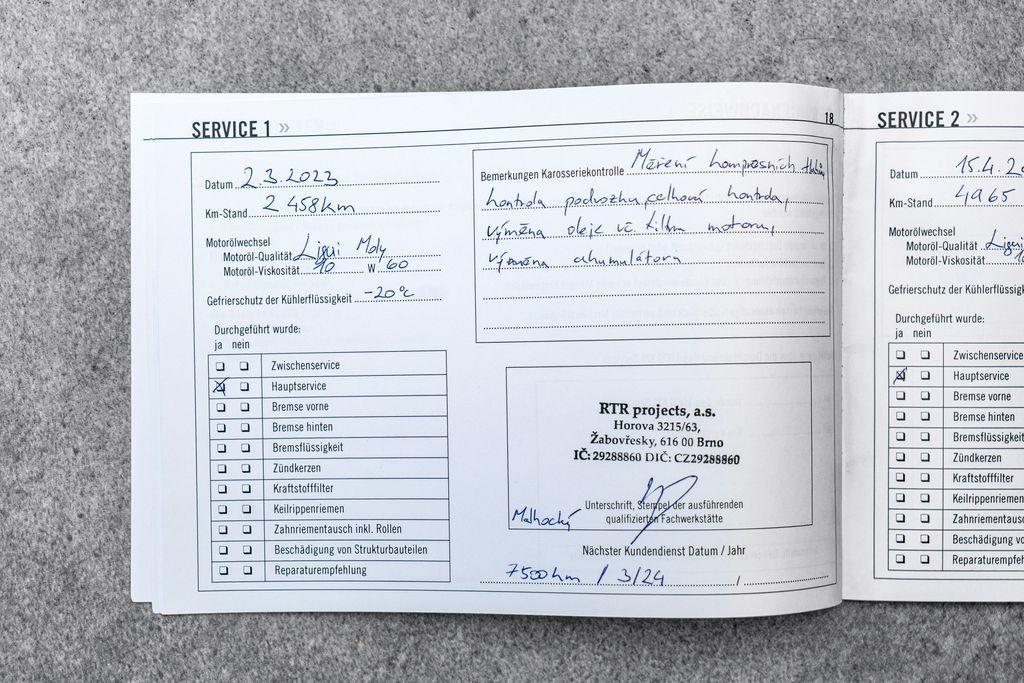 SERVICE 1 »
18
Datum 2.3.2023
Km-Stand 2 458km
Motorölwechsel
Motoröl-Qualität Liqui Moly
Motoröl-Viskosität 10 W 60
Gefrierschutz der Kühlerflüssigkeit -20°c
Durchgeführt wurde:
ja nein
Zwischenservice
Hauptservice
Bremse vorne
Bremse hinten
Bremsflüssigkeit
Zündkerzen
Kraftstofffilter
Keilrippenriemen
Zahnriementausch inkl. Rollen
Beschädigung von Strukturbauteilen
Reparaturempfehlung
Bemerkungen Karosseriekontrolle Měření kompresních
kontrola podvozku, celková kontrola,
výměna oleje vč. filtru motoru,
výměna akumulátoru
RTR projects, a.s.
Horova 3215/63,
Žabovřesky, 616 00 Brno
IČ: 29288860 DIČ: CZ29288860
Unterschrift, Stempel der ausführenden
qualifizierten Fachwerkstätte
Nächster Kundendienst Datum / Jahr
7500km / 3/24 /
SERVICE 2 »
Datum 15.4.
Km-Stand 4965
Motorölwechsel
Motoröl-Qualität
Motoröl-Viskosität
Gefrierschutz der Kühlerflüssigk
Durchgeführt wurde:
ja nein
Zwischenservice
Hauptservice
Bremse vorne
Bremse hinten
Bremsflüssigkeit
Zündkerzen
Kraftstofffilter
Keilrippenriemen
Zahnriementaus
Beschädigung vo
Reparaturempfeh